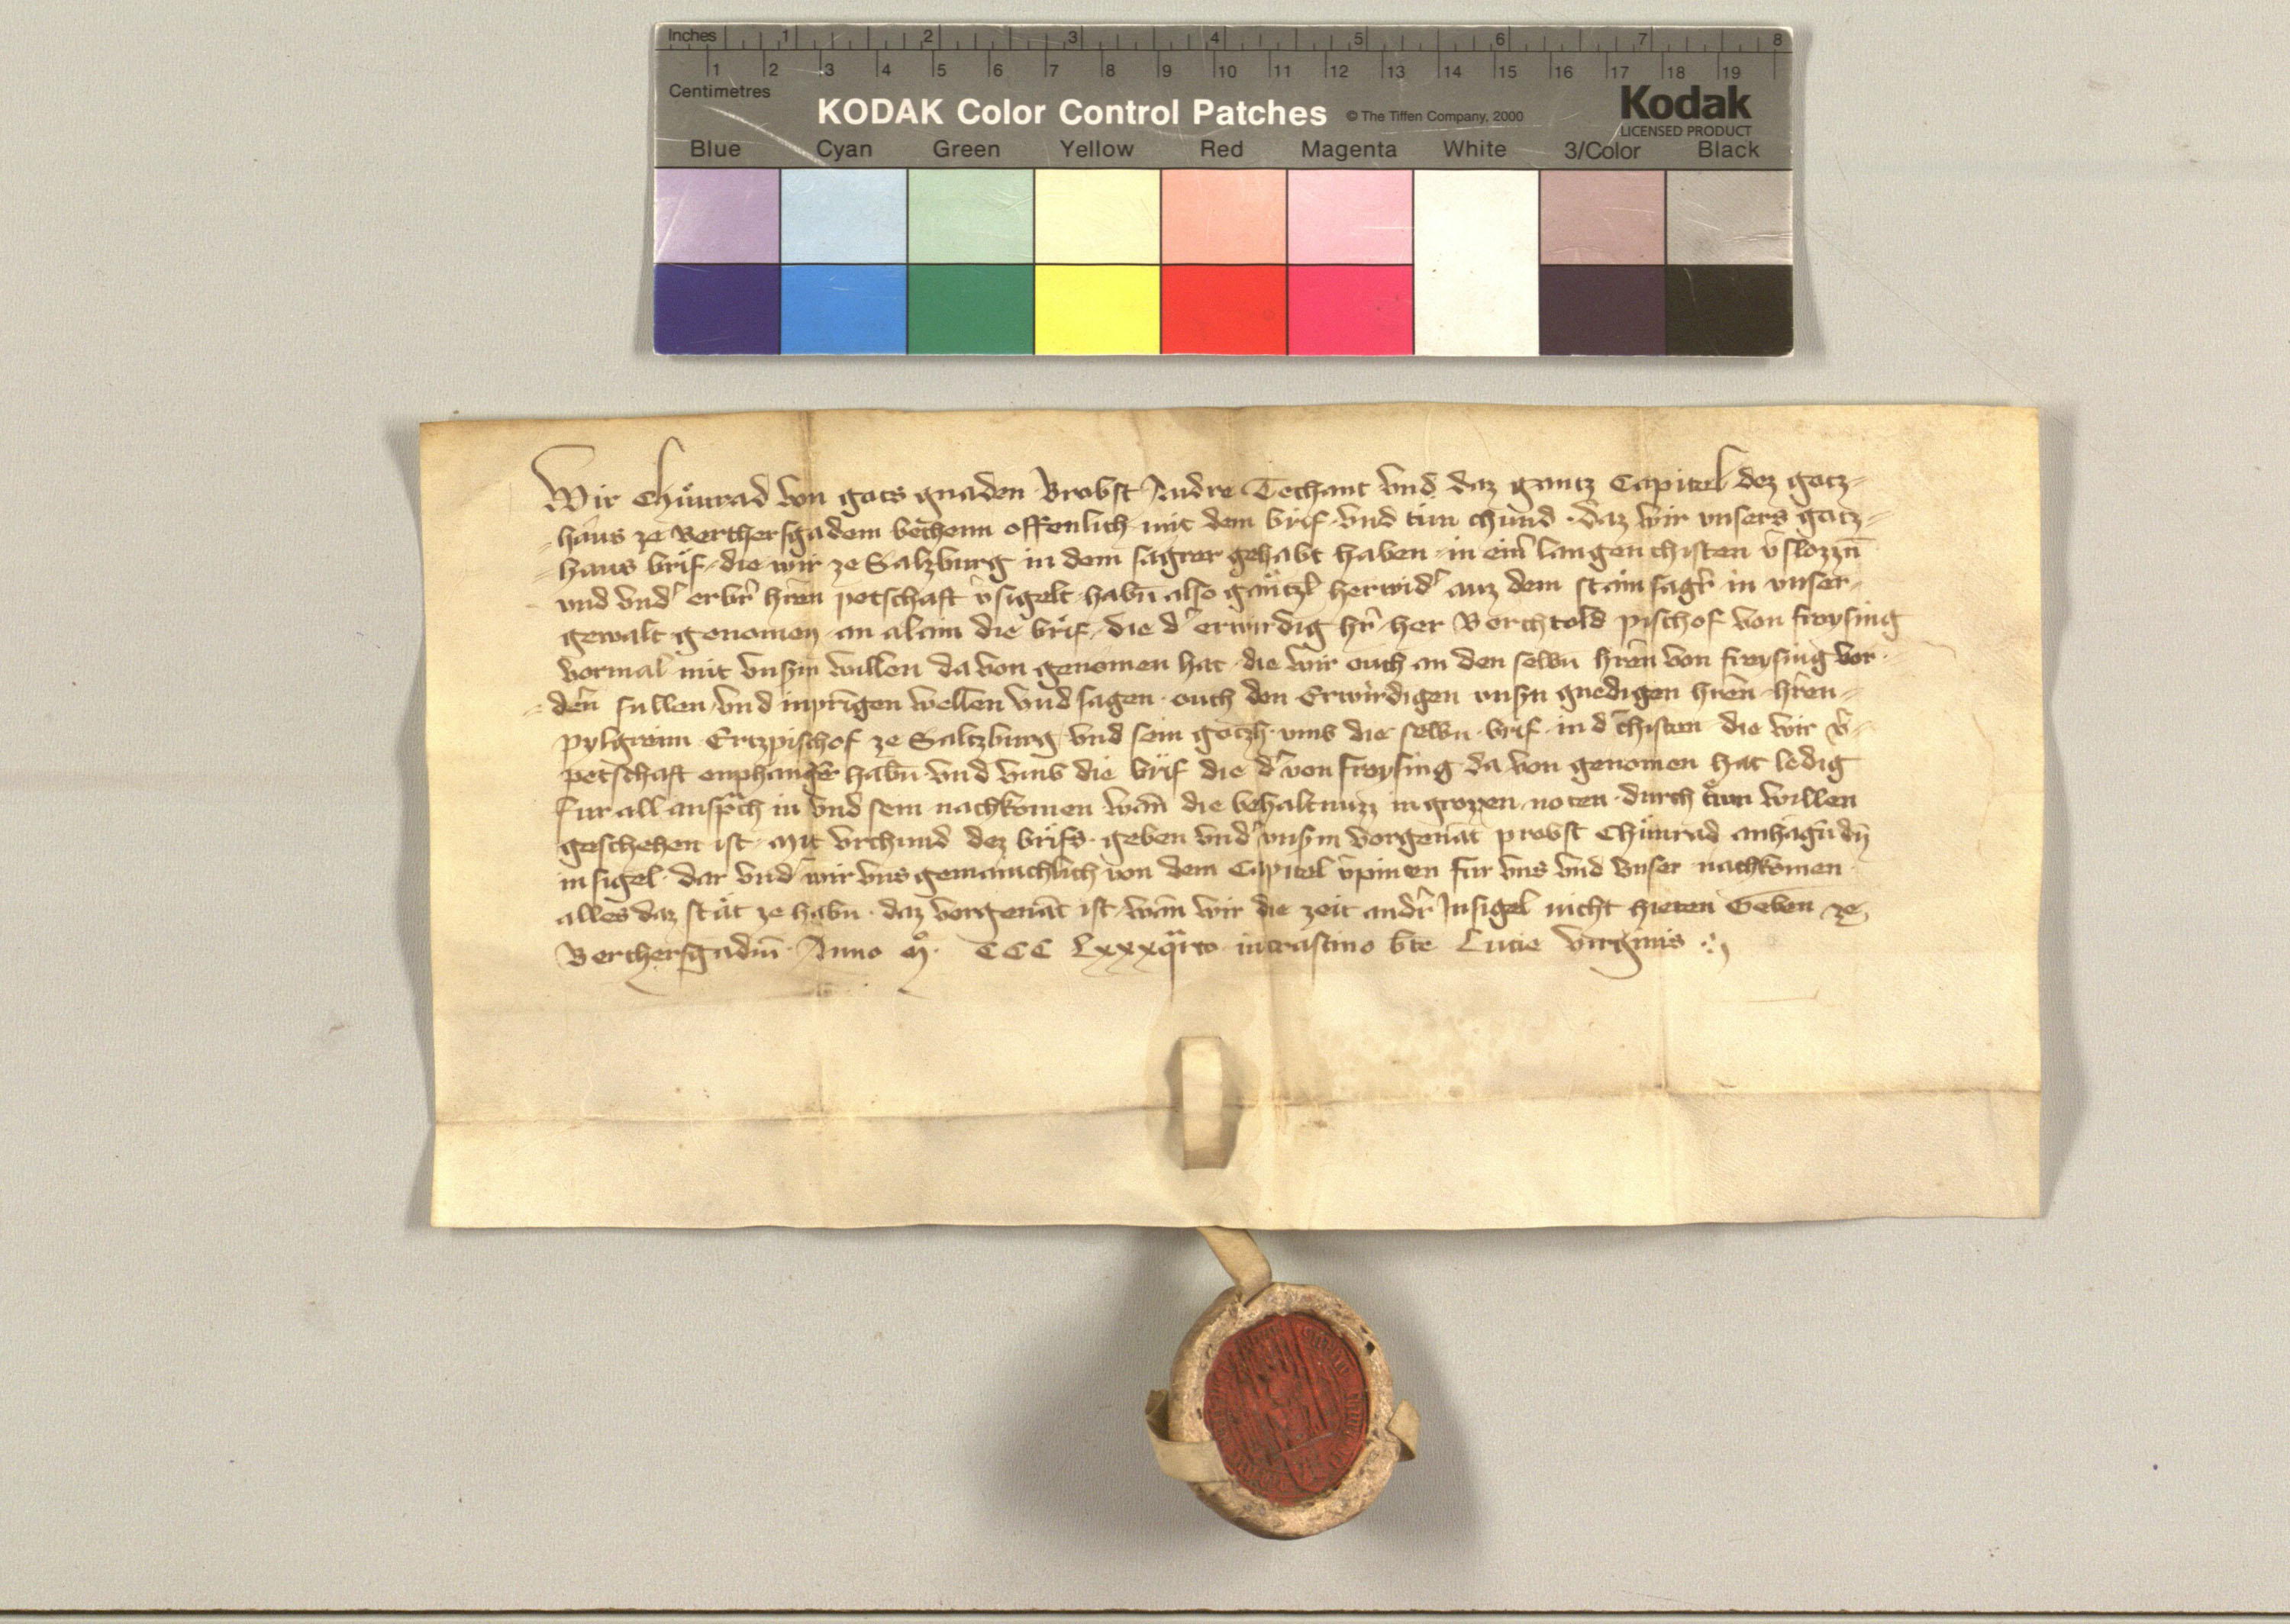 Inches 1 2 3 4 5 6 7 8
1 2 3 4 5 6 7 8 9 10 11 12 13 14 15 16 17 18 19
Centimetres
KODAK Color Control Patches © The Tiffen Company, 2000 Kodak
LICENSED PRODUCT
Blue Cyan Green Yellow Red Magenta White 3/Color Black
Wir Chunrad von gots gnaden Brobst Andre Techant vnd daz gantz Capitel dez gotz-
haus ze Berthersgadem bechenn offenlich mit dem brif vnd tun chund daz wir vnsers gotz-
haus brif die wir ze Salzburg in dem sagrer gehabt haben in ein langen chisten vslozzn
vnd vnd erbr hren petschaft vsigelt habn also gantzl herwid auz dem stain sagr in vnser
gewalt genomen an alain die brif die d erwirdig hr her Berchtold pischof von freysing
vormal mit vnsm willen da von genomen hat die wir ouch an den selbn hren von freysing vor
dern sullen vnd inpringen wellen vnd sagen ouch den Erwirdigen vnsn gnedigen hren hren
pylgreim Ertzpischof ze Saltzburg vnd sein gotzh vmb die selbn brif in d chisten die wir v
petschaft enphangen habn vnd vmb die brif die d von freysing da von genomen hat ledig
fur all ansprch in vnd sein nachkomen wann die behaltnuzz in grozzen noten durch trwn willen
geschehen ist Mit vrchund dez brifs geben vnd vnsm vorgenat probst Chunrad anhagndn
insigel dar vnd wir vns gemainchlich von dem Capitel vpinten fur vns vnd vnser nachkomen
alles daz stat ze habn daz vorgenat ist wan wir die zeit andr Insigel nicht hieten Geben ze
Berthersgadm Anno M CCC Lxxxqrto in crastino bte Lucie virginis